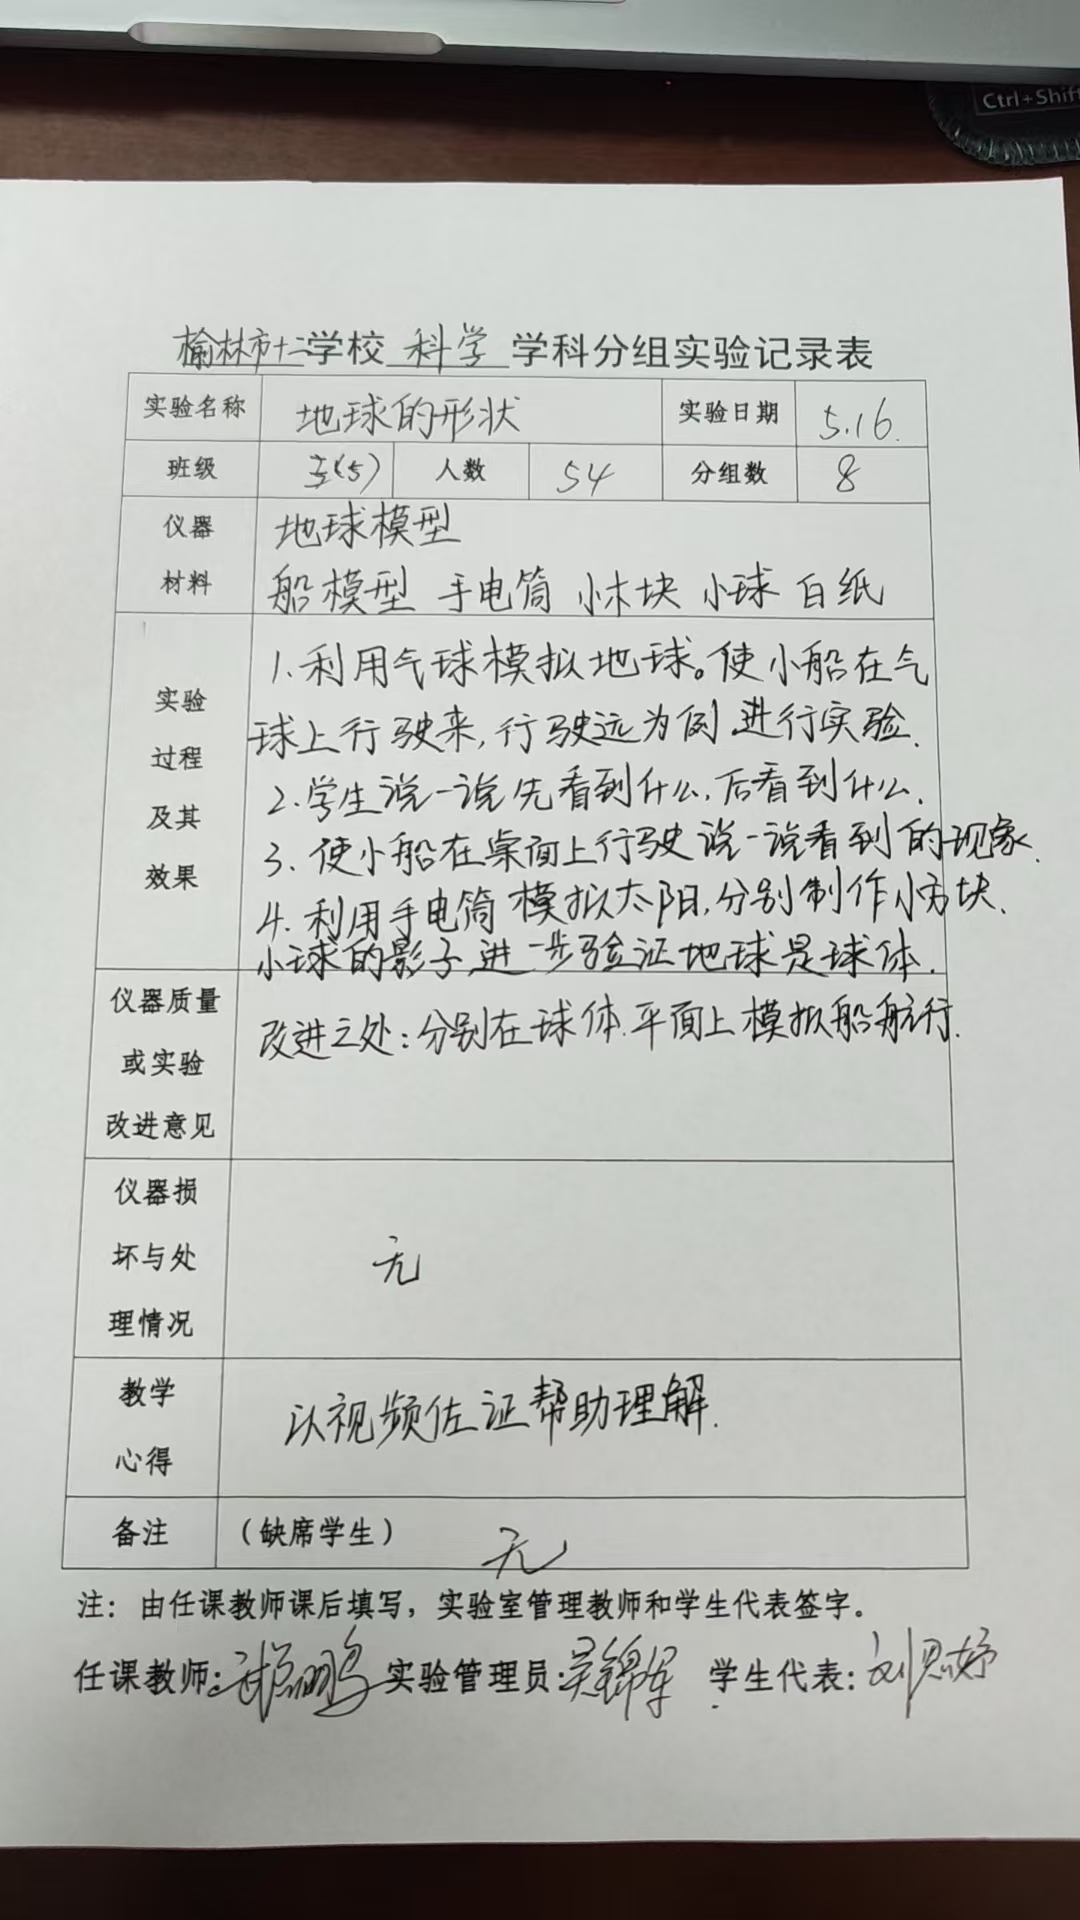 Ctrl+Shift
榆林市十二学校 科学 学科分组实验记录表
实验名称 地球的形状 实验日期 5.16.
班级 五(5) 人数 54 分组数 8
仪器 地球模型
材料 船模型 手电筒 小木块 小球 白纸
实验
过程
及其
效果
1.利用气球模拟地球。使小船在气
球上行驶来,行驶远为例.进行实验.
2.学生说一说先看到什么,后看到什么.
3.使小船在桌面上行驶说一说看到的现象.
4.利用手电筒模拟太阳,分别制作小方块.
小球的影子进一步验证地球是球体.
仪器质量
或实验
改进意见
改进之处:分别在球体.平面上模拟船航行.
仪器损
坏与处
理情况
无
教学
心得
以视频佐证帮助理解.
备注 (缺席学生) 无
注: 由任课教师课后填写,实验室管理教师和学生代表签字。
任课教师: 实验管理员:吴锦军 学生代表:刘思妤